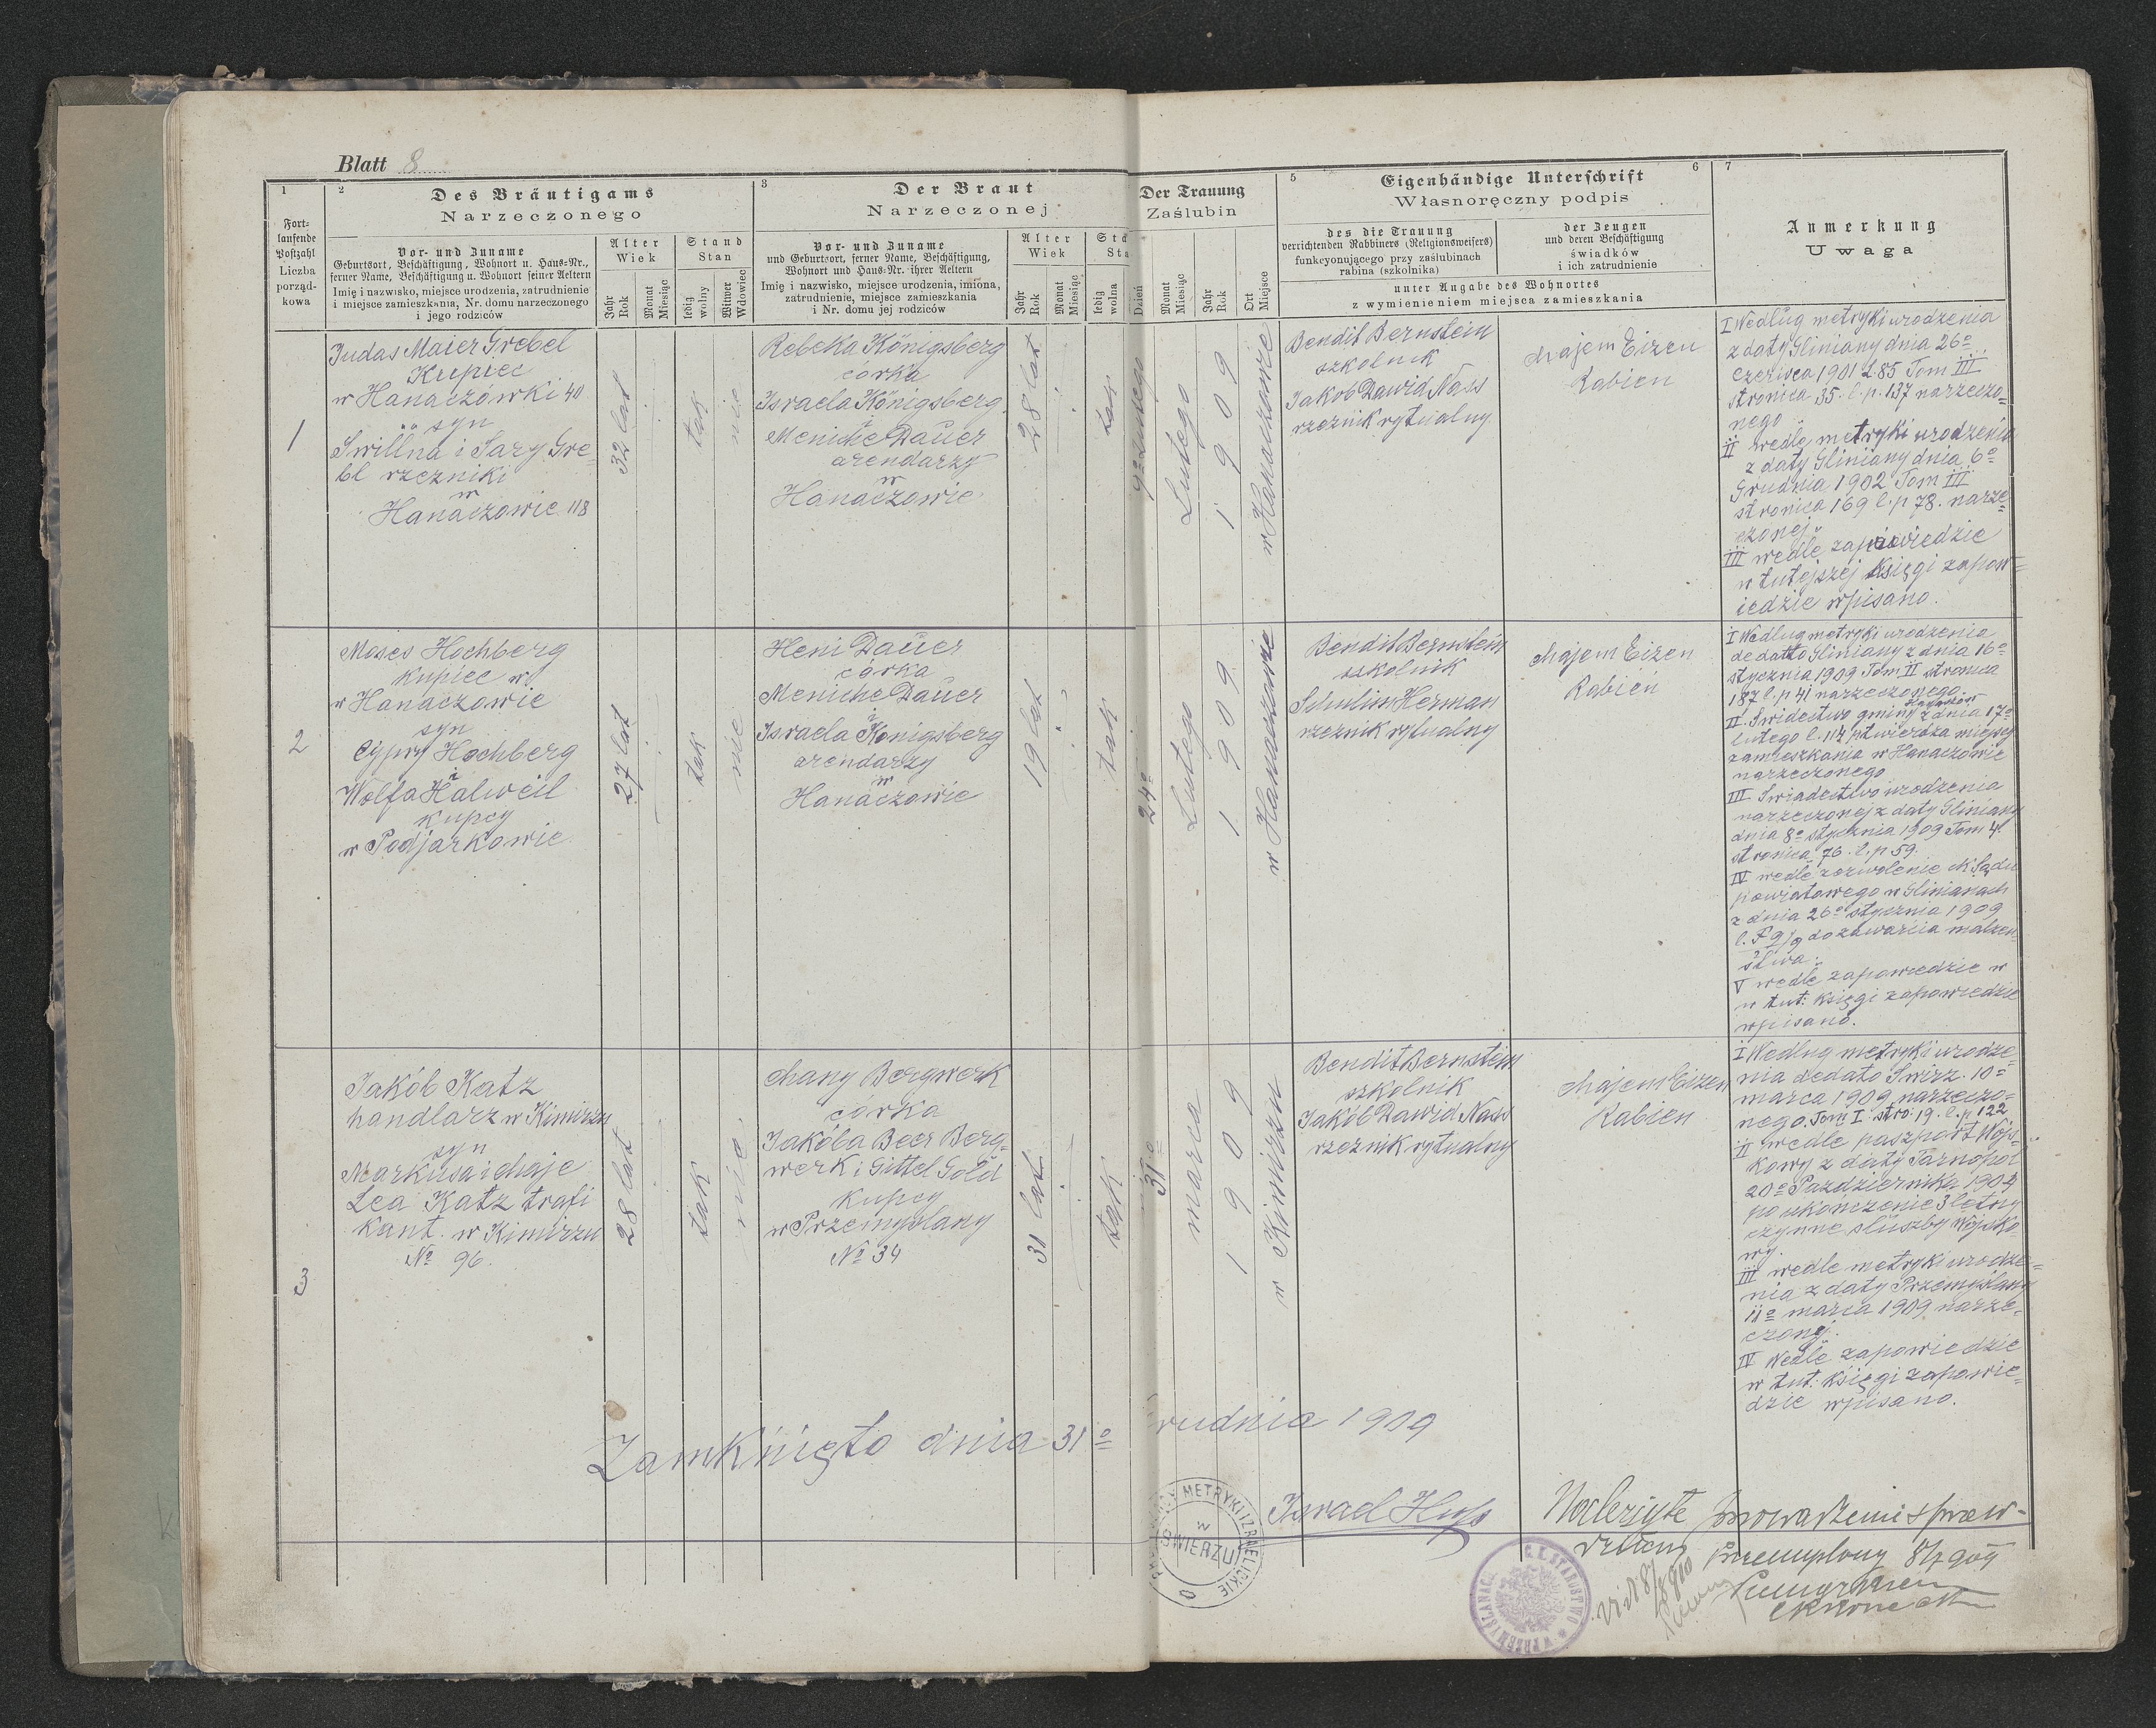 Blatt 8
1
2
Des Bräutigams
Narzeczonego
3
Der Braut
Narzeczonej
Der Trauung
Zaślubin
5
Eigenhändige Unterschrift
6
Własnoręczny podpis
7
Anmerkung
Uwaga
Fort-
laufende
Postzahl
Liczba
porząd-
kowa
Vor- und Zuname
Geburtsort, Beschäftigung, Wohnort u. Haus-Nr.,
ferner Name, Beschäftigung u. Wohnort seiner Aeltern
Imię i nazwisko, miejsce urodzenia, zatrudnienie
i miejsce zamieszkania, Nr. domu narzeczonego
i jego rodziców
Alter
Wiek
Jahr
Rok
Monat
Miesiąc
Stand
Stan
ledig
wolny
Witwer
Wdowiec
Vor- und Zuname
und Geburtsort, ferner Name, Beschäftigung,
Wohnort und Haus-Nr. ihrer Aeltern
Imię i nazwisko, miejsce urodzenia, imiona,
zatrudnienie, miejsce zamieszkania
i Nr. domu jej rodziców
Alter
Wiek
Jahr
Rok
Monat
Miesiąc
ledig
wolna
Dzień
Monat
Miesiąc
Jahr
Rok
Ort
Miejsce
des die Trauung
verrichtenden Rabbiners (Religionsweisers)
funkcyonującego przy zaślubinach
rabina (szkolnika)
der Zeugen
und deren Beschäftigung
świadków
i ich zatrudnienie
unter Angabe des Wohnortes
z wymienieniem miejsca zamieszkania
1
Judas Maier Grebel
Kupiec
w Hanaczówki 40
syn
Swillna i Sary Gre=
bl rzezniki
w
Hanaczowie 118
32 lat
tak
nie
Rebeka Königsberg
corka
Israela Königsberg
i
Meniche Dauer
arendarzy
w
Hanaczowie
28 lat
tak
9º Lutego
Lutego
1909
w Hanaczowie
Bendit Bernstein
szkolnik
Jakob Dawid Nass
rzeznik rytualny
Majem Eizen
Rabien
I Według metryki urodzenia
z daty Gliniany dnia 26º
czerwca 1901 L 85 Tom III
stronica 35. l. p. 137 narzeczo=
nego
II wedle metryki urodzenia
z daty Gliniany dnia 6º
Grudnia 1902 Tom III
stronica 169 l. p 78. narze=
czonej
III wedle zapowiedzie
w tutejszej księgi zapow=
iedzie wpisano.
2
Moses Hochberg
Kupiec w
w Hanaczowie
syn
Cypry Hochberg
i
Wolfa Halweil
kupcy
w Podjarkowie
27 lat
tak
nie
Heni Dauer
córka
Meniche Dauer
i
Israela Königsberg
arendarzy
w
Hanaczowie
19 lat
tak
24º
Lutego
1909
w Hanaczowie
Bendit Bernstein
szkolnik
Schulim Herman
rzeznik rytualny
Majem Eizen
Rabien
I Według metryki urodzenia
de datto Gliniany z dnia 16º
stycznia 1909 Tom II stronica
187 l. p 41 narzeczonego
II. Swidectwo gminy z dnia 17º
lutego l. 114 ptwierdza miejscy
zamieszkania w Hanaczowie
narzeczonego
III Swiadectwo urodzenia
narzeczonej z daty Gliniany
dnia 8º stycznia 1909 Tom 4.
stronica 76. l. p 59.
IV wedle zozwolenie ck Sądu
powiatowego w Glinianach
z dnia 26º stycznia 1909
l. P 9/9 do zawarcia malzen=
stwa.
V wedle zapowiedzie w
w tut: księgi zapowiedzie
wpisano.
3
Jakób Katz
handlarz w Kimirzu
syn
Markusa i Chaje
Lea Katz trafi
kant. w Kimirzu
Nº 96.
28 lat
tak
nie.
Chany Bergwerk
córka
Jakóba Beer Berg=
werk i Gittel Gold
kupcy
w Przemyslany
Nº 34
31 lat
tak
31º
marca
1909
w Kimirzu
Bendit Bernstein
szkolnik
Jakób Dawid Nass
rzeznik rytualny
Majem Eizen
Rabien
I Według metryki urodze=
nia dedato Swirz. 10º
marca 1909 narzeczo=
nego. Tom I. stro: 19. l. p 122
II wedle paszport Wojs=
kowy z daty Tarnopol
20º Pazdziernika 1904
po ukończenie 3 letny
czynne sluszby Wojsko=
wy.
III wedle metryki urodze=
nia z daty Przemyslany
11º marca 1909 narze=
czonej.
IV Wedle zapowiedzie
w tut: księgi zapowie=
dzie wpisano.
Zamknięto dnia 31º rudnia 1909
Israel Hass
METRYKI IZRAELICKIE
w
SWIERZU
C. K. STAROSTWO W PRZEMYSLANACH